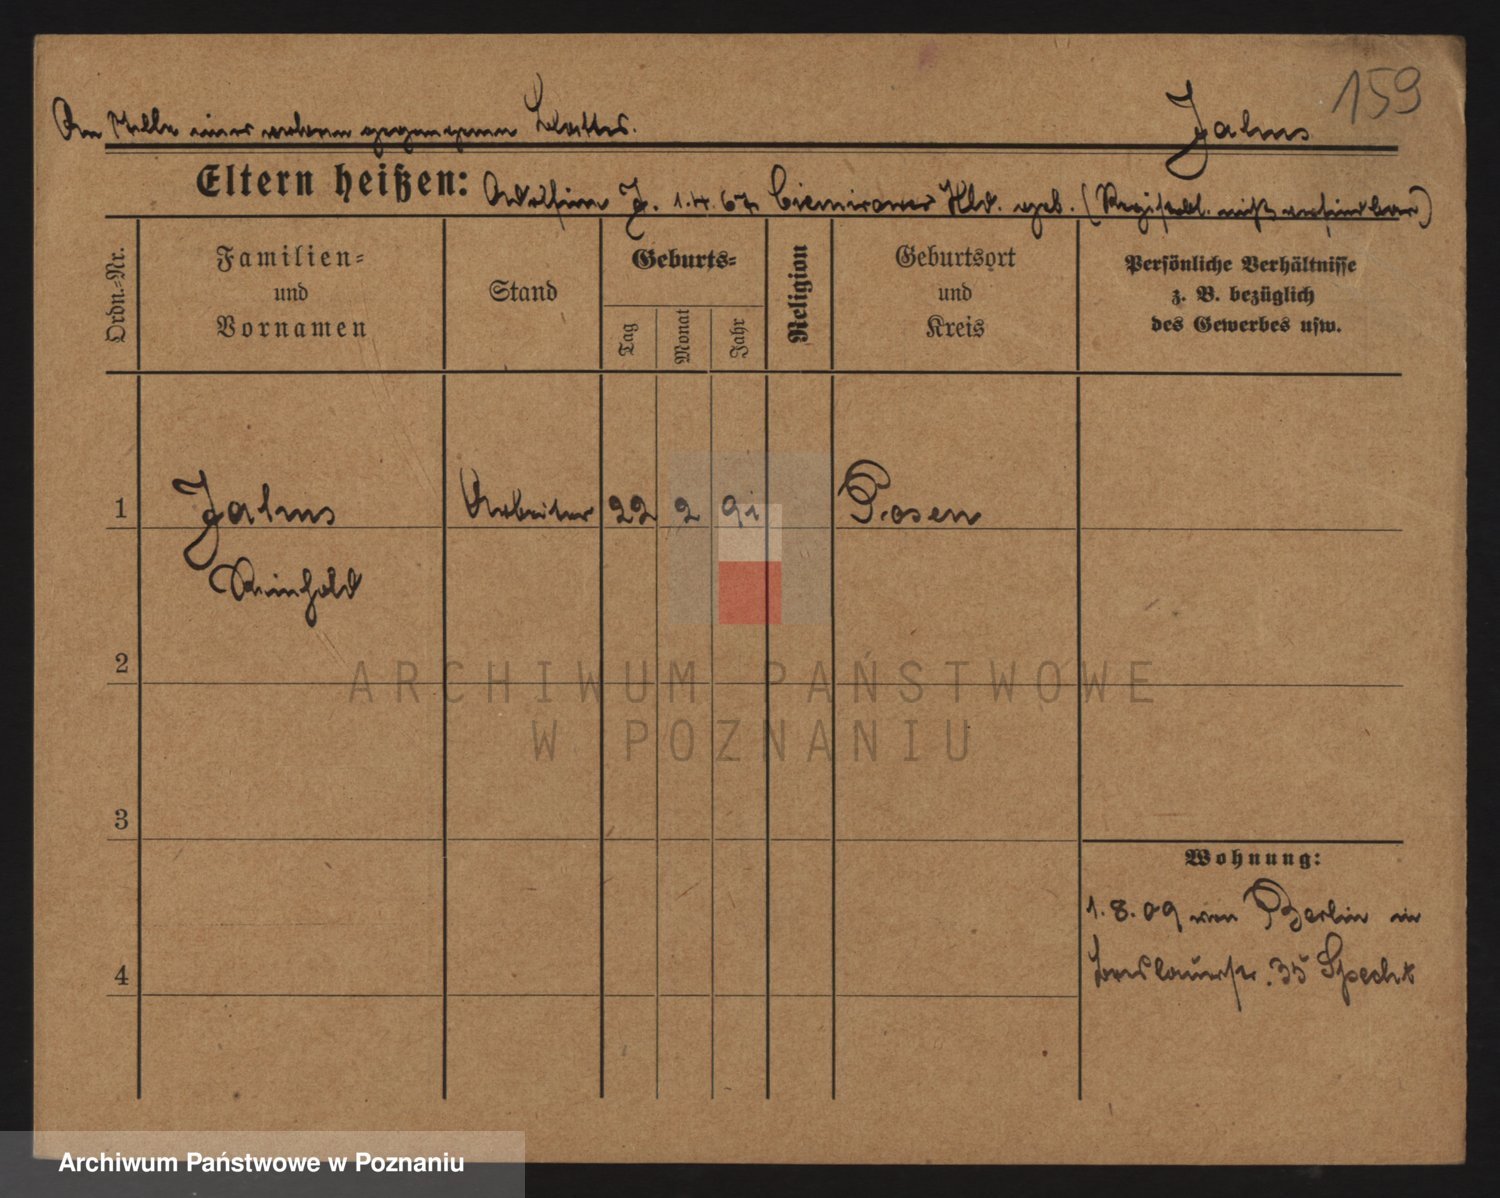 159
An Stelle eines verloren gegangenen Blattes. Jahns
Eltern heißen: J. 1.4.67 geb. (Registerbl. nicht auffindbar)
Ordn.-Nr.
Familien-
und
Vornamen
Stand
Geburts-
Tag
Monat
Jahr
Religion
Geburtsort
und
Kreis
Persönliche Verhältnisse
z. B. bezüglich
des Gewerbes usw.
1 Jahns Arbeiter 22 2 91 Posen
Reinhold
2
3
Wohnung:
1.8.09 von Berlin in
Breslauerstr. 35 Specht
4
ARCHIWUM PAŃSTWOWE
W POZNANIU
Archiwum Państwowe w Poznaniu